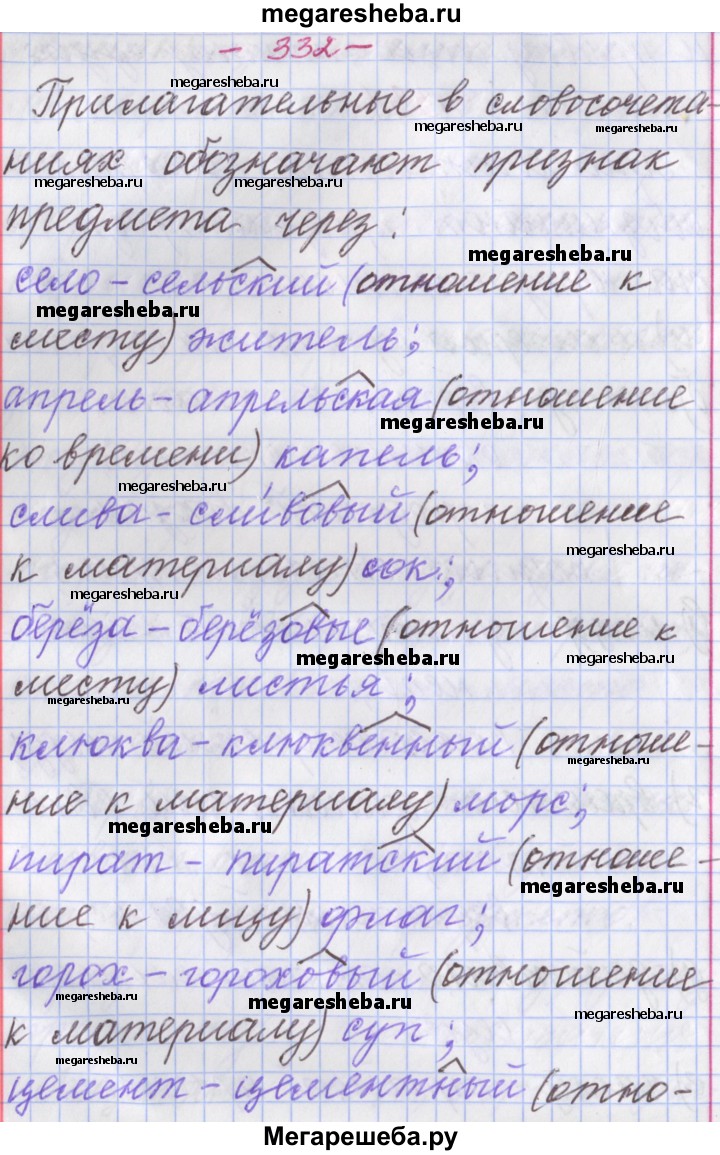 megaresheba.ru
- 332 -
megaresheba.ru
Прилагательные в словосочета-
megaresheba.ru megaresheba.ru
ниях обозначают признак
megaresheba.ru megaresheba.ru
предмета через:
megaresheba.ru
село - сельский (отношение к
megaresheba.ru
месту) житель;
апрель - апрельская (отношение
megaresheba.ru
ко времени) капель;
megaresheba.ru
слива - сливовый (отношение
megaresheba.ru
к материалу) сок;
megaresheba.ru
берёза - берёзовые (отношение к
megaresheba.ru megaresheba.ru
месту) листья;
megaresheba.ru
клюква - клюквенный (отноше-
megaresheba.ru
ние к материалу) морс;
megaresheba.ru
пират - пиратский (отноше-
megaresheba.ru
ние к лицу) флаг;
горох - гороховый (отношение
megaresheba.ru megaresheba.ru megaresheba.ru
к материалу) суп;
megaresheba.ru
цемент - цементный (отно-
Мегарешеба.ру